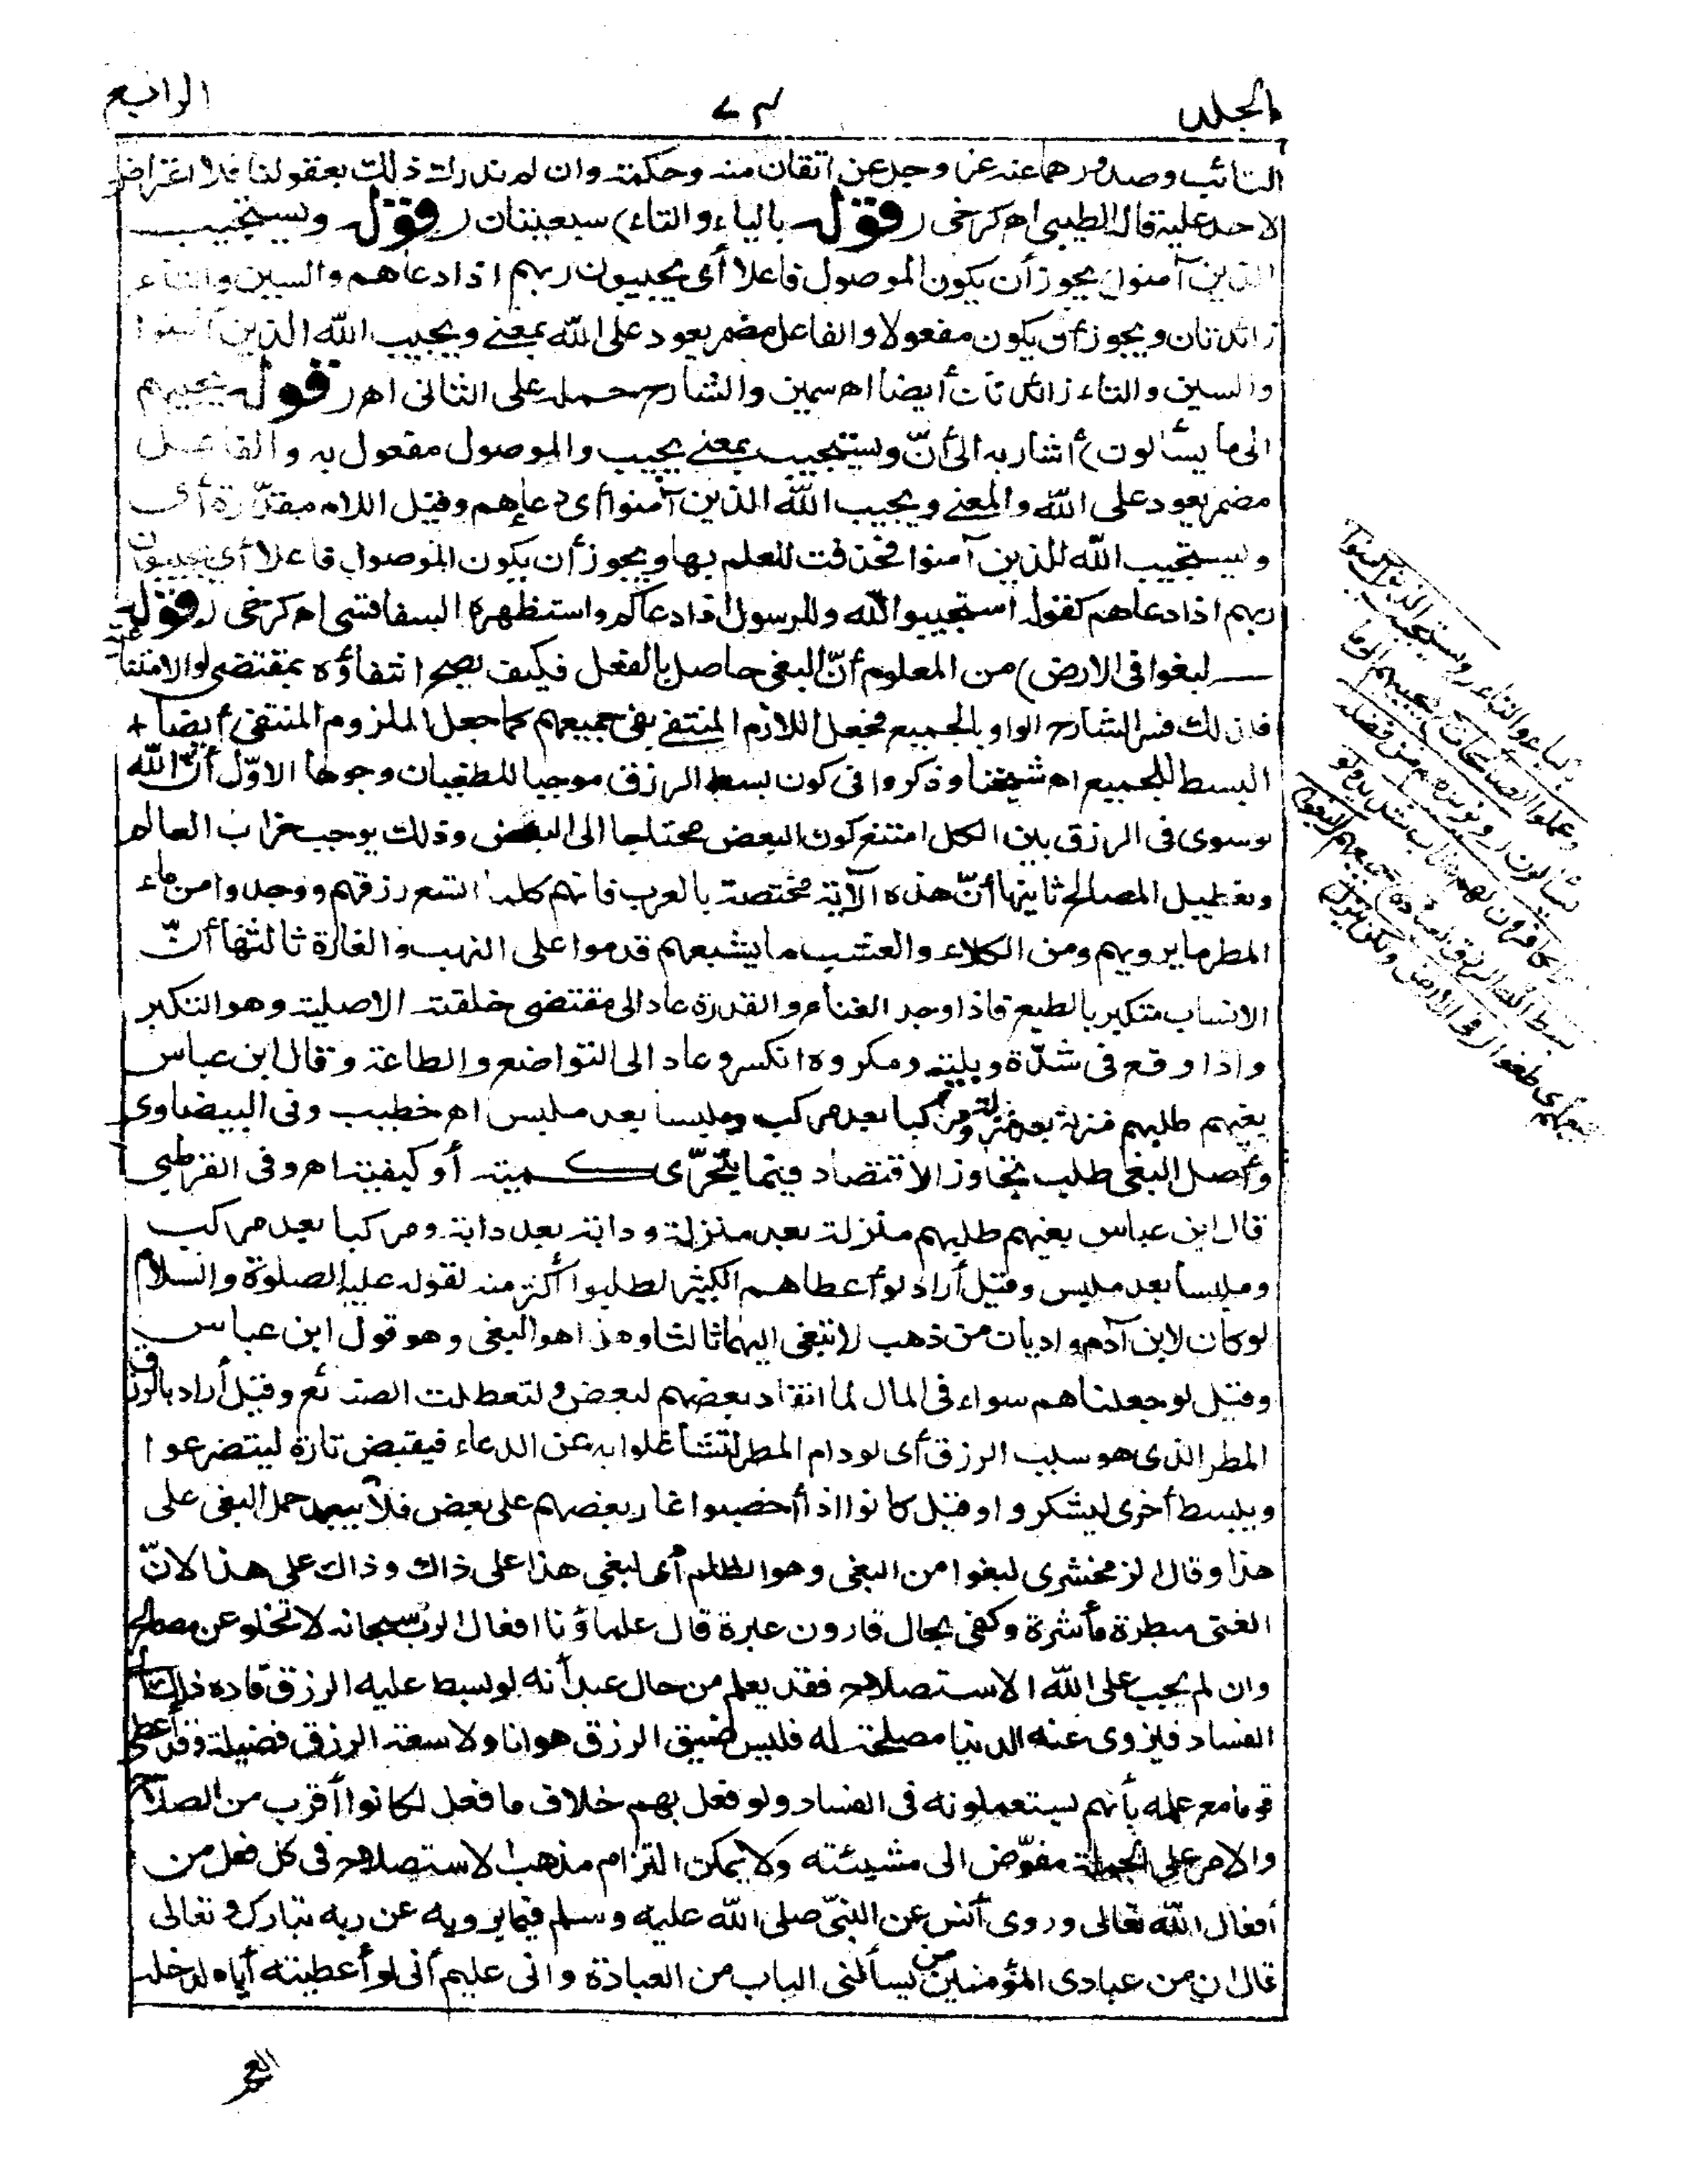 الجلد
الرابع
التائب وصدورهما عنه عز وجل عن اتقان منه وحكمة وان لم ندرك ذلك بعقولنا فلا اعتراض
لاحد عليه قال الطيبى اه كرخى (قوله بالياء والتاء) سبعيتان (قوله ويستجيب
الذين آمنوا) يجوز أن يكون الموصول فاعلا أى يجيبون ربهم اذا دعاهم والسين والتاء
زائدتان ويجوز أن يكون مفعولا والفاعل مضمر يعود على الله بمعنى ويجيب الله الذين آمنوا
والسين والتاء زائدتان أيضا اه سمين والشارح حمله على الثانى اه (قوله يجيبهم
الى ما يسألون) أشار به الى أنّ ويستجيب بمعنى يجيب والموصول مفعول به والفاعل
مضمر يعود على الله والمعنى ويجيب الله الذين آمنوا أى دعاءهم وقيل اللام مقدّرة أى
ويستجيب الله للذين آمنوا فحذفت للعلم بها ويجوز أن يكون الموصول فاعلا أى يجيبون
ربهم اذا دعاهم كقوله استجيبوا لله وللرسول اذا دعاكم واستظهره السفاقسى اه كرخى (قوله
لبغوا فى الارض) من المعلوم أنّ البغى حاصل بالفعل فكيف يصح انتفاؤه بمقتضى لو الامتناعية
فلذلك فسر الشارح الواو بالجميع فجعل اللازم المنتفى بغى جميعهم كما جعل الملزوم المنتفى أيضا +
البسط للجميع اه شيخنا وذكروا فى كون بسط الرزق موجبا للطغيان وجوها الاوّل أن الله
لو سوى فى الرزق بين الكل امتنع كون البعض محتاجا الى البعض وذلك يوجب خراب العالم
وتعطيل المصالح ثانيها أنّ هذه الآية مختصة بالعرب فانهم كلما اتسع رزقهم ووجدوا من ماء
المطر ما يرويهم ومن الكلاء والعشب ما يشبعهم قدموا على النهب والغارة ثالثها أنّ
الانسان متكبر بالطبع فاذا وجد الغناء والقدرة عاد الى مقتضى خلقته الاصلية وهو التكبر
واذا وقع فى شدّة وبلية ومكروه انكسر وعاد الى التواضع والطاعة وقال ابن عباس
بغيهم طلبهم منزلة بعد منزلة ومركبا بعد مركب وملبسا بعد ملبس اه خطيب وفى البيضاوى
وأصل البغى طلب تجاوز الاقتصاد فيما يتحرّى كمية أو كيفية اه وفى القرطبى
قال ابن عباس بغيهم طلبهم منزلة بعد منزلة ودابة بعد دابة ومركبا بعد مركب
وملبسا بعد ملبس وقيل أراد لو أعطاهم الكثير لطلبوا أكثر منه لقوله عليه الصلوة والسلام
لو كان لابن آدم واديان من ذهب لابتغى اليهما ثالثا وهذا هو البغى وهو قول ابن عباس
وقيل لو جعلناهم سواء فى المال لما انقاد بعضهم لبعض ولتعطلت الصنائع وقيل أراد بالرزق
المطر الذى هو سبب الرزق أى لو دام المطر لتشاغلوا به عن الدعاء فيقبض تارة ليتضرعوا
ويبسط أخرى ليشكروا وقيل كانوا اذا أخصبوا أغار بعضهم على بعض فلا يبعد حمل البغى على
هذا وقال الزمخشرى لبغوا من البغى وهو الظلم أى لبغى هذا على ذاك وذاك على هذا لانّ
الغنى مبطرة مأشرة وكفى بحال قارون عبرة قال علماؤنا افعال الرب سبحانه لا تخلو عن مصالح
وان لم يجب على الله الاستصلاح فقد يعلم من حال عبد أنه لو بسط عليه الرزق قاده ذلك الى
الفساد فيزوى عنه الدنيا مصلحة له فليس ضيق الرزق هوانا ولا سعة الرزق فضيلة وقد أعطى
قوما مع علمه بأنهم يستعملونه فى الفساد ولو فعل بهم خلاف ما فعل لكانوا أقرب من الصلاح
والامر على الجملة مفوّض الى مشيئته ولا يمكن التزام مذهب الاستصلاح فى كل فعل من
أفعال الله تعالى وروى أنس عن النبىّ صلى الله عليه وسلم فيما يرويه عن ربه تبارك وتعالى
قال ان من عبادى المؤمنين من يسألنى الباب من العبادة وانى عليم أنى لو أعطيته أياه لدخله
بالياء والتاء (ويستجيب الذين آمنوا
وعملوا الصالحات) يجيبهم الى ما
يسألون (ويزيدهم من فضله
والكافرون لهم عذاب شديد ولو
بسط الله الرزق لعباده) جميعهم (لبغوا)
جميعهم أى طغوا (فى الارض ولكن ينزل
العجب